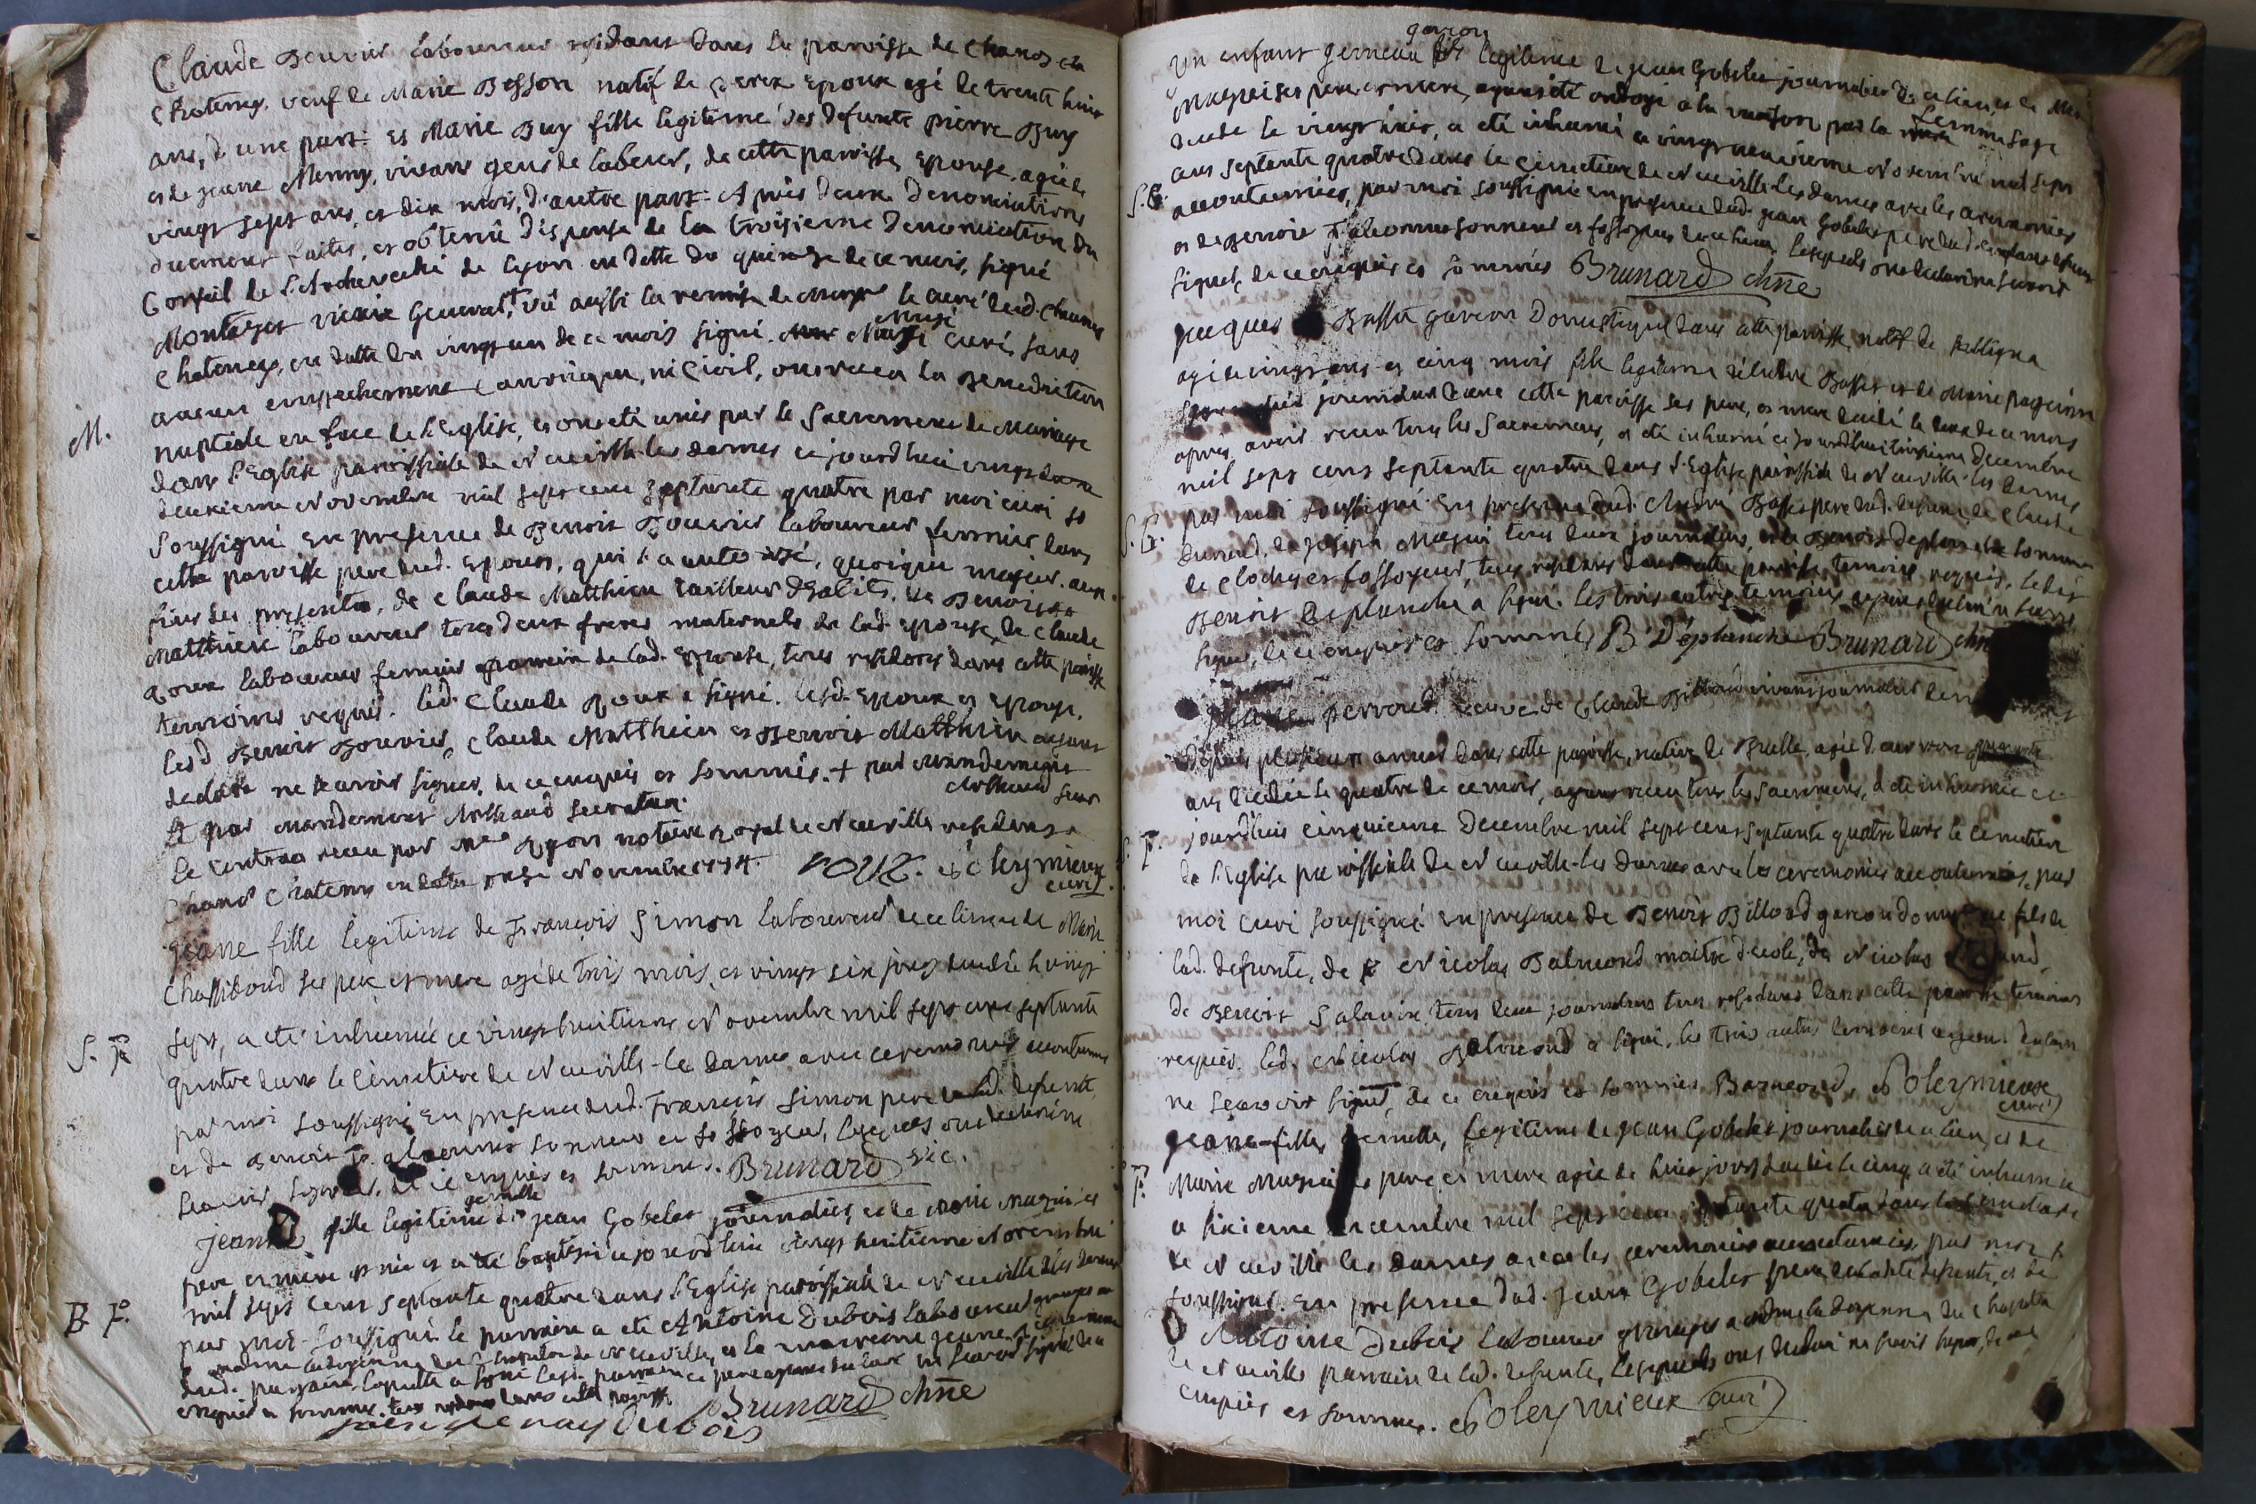 Claude Bouvier laboureur residant dans la paroisse de Chanoz et
Chatenay, veuf de Marie Besson natif de epoux agé de trente huit
ans, d'une part. et Marie Buy fille legitime des defunts pierre Buy
et de jeanne Menny, vivans gens de labeur, de cette paroisse, epouse, agée de
vingt sept ans, et dix mois, d'autre part. Après deux denonciations
duement faites, et obtenu dispense de la troisieme denonciation du
Conseil de l'Archeveché de Lyon en datte du quinze de ce mois, signé
Montazet vicaire General,+ vû aussi la remise de le curé dud. Chanoz
Chatenay, en datte du vingt un de ce mois signé curé, sans
aucun empechement canonique, ni Civil, ont recu la Benediction
M.
nuptiale en face de l'Eglise, et ont été unis par le Sacrement de Mariage
dans l'Eglise paroissiale de Neuville-les dames ce jourdhui vingt
deuxieme Novembre mil sept cent septante quatre par moi curé
soussigné en presence de Benoit Bouvier laboureur fermier dans
cette paroisse pere dud. Epoux, qui l'a autorisé, quoique majeur, aux
fins des presentes, de Claude Matthieu tailleur d'habits, de Benoit
Matthieu laboureur tous deux freres maternels de lad. epouse, de Claude
Roux laboureur fermier parrein de lad. Epouse, tous residans dans cette paroisse
temoins requis. led. Claude Roux a signé. lesd. Epoux et Epouse,
lesd Benoit Bouvier, Claude Matthieu et Benoit Matthieu ayant
declaré ne sçavoir signer, de ce enquis et sommés. + par mandement
Arthaud secr
et par mandement Arthaud secretaire.
le contrat recu par Me Ryon notaire royal de Neuville residant a
Chanoz Chatenay en datte onze Novembre 1774. roux. Poleymieux
curé
jeane fille legitime de François Simon laboureur de ce lieu et de Marie
Chassiboud ses pere et mere agée de trois mois, et vingt six jours decedée le vingt
S. F.
sept, a été inhumée ce vingt huitieme Novembre mil sept cent septante
quatre dans le Cimetiere de Neuville-les dames avec ceremonies acoutumées
par moi soussigné En presence dud. François Simon pere de lad. defunte,
et de Benoit falconnet sonneur et fossoyeur, lesquels ont declaré ne
scavoir signer, de ce enquis et sommés. Brunard vic.
gemelle
jeanne fille legitime de jean Gobelet journalier, et de marie Maginier
pere et mere est née et a été baptisée ce jourdhui vingt huitieme Novembre
B F.
mil sept cent septante quatre dans l'Eglise paroissiale de Neuville les dames
par moi soussigné. le parrain a été Antoine dubois laboureur granger de
madame la doyenne du Chapitre de Neuville, et la marreine jeane
dud. parrain, laquelle a signé. lesd. parrain et pere ayant declaré ne scavoir signer de ce
enquis et sommés. tous residans dans cette paroisse
Brunard chne
dubois
garçon
Un enfant gemeau legitime de jean Gobelet journalier de ce lieu, et de Marie
Maginier pere et mere, ayant été ondoyé a la maison par la femme sage
decedé le vingt huit, a eté inhumé ce vingt neuvieme Novembre mil sept
cens septante quatre dans le Cimetiere de Neuville les dames avec les ceremonies
S. G.
acoutumées, par moi soussigné en presence dud. jean Gobelet pere dud. enfant defunt
et de Benoit Falconnet sonneur et fossoyeur de ce lieu, lesquels ont declaré ne scavoir
signer, de ce enquis et sommés Brunard chne
jacques Basset garçon Domestique dans cette paroisse natif de
agé de vingt ans et cinq mois fils legitime d'André Basset et de Marie
journalier dans cette paroisse ses pere, et mere decedé le deux de ce mois
après avoir recu tous les Sacremens, a eté inhumé ce jourdhui troisieme Decembre
mil sept cens septante quatre dans l'Eglise paroissiale de Neuville-les dames
S. G.
par moi soussigné En presence dud. André Basset pere dud. defunt, de Claude
Durand, de joseph Maginier tous deux journaliers, de Benoit Deplanche sonneur
de cloches et fossoyeur, tous residans dans cette paroisse temoins requis. ledit
Benoit Deplanche a signé. les trois autres temoins ayant declaré ne scavoir
signer, de ce enquis et sommés B Déplanche Brunard chne
perroud veuve de Claude Billoud vivant journalier
depuis plusieurs années dans cette paroisse, native de Bruelle, agée d'environ
ans decedée le quatre de ce mois, ayant recu tous les Sacremens, a eté inhumée ce
S. F.
jourdhui cinquieme Decembre mil sept cens septante quatre dans le Cimetiere
de l'Eglise paroissiale de Neuville-les dames avec les ceremonies acoutumées, par
moi curé soussigné En presence de Benoit Billoud garcon domestique fils de
lad. defunte, de Nicolas Balmond maitre d'ecole, de Nicolas
de Benoit Salavin, tous deux journaliers tous residans dans cette paroisse temoins
requis. led. Nicolas Balmond a signé, les trois autres temoins ayant declaré
ne sçavoir signer, de ce enquis et sommés Balmond. Poleymieux
curé
jeane-fille, gemelle, legitime de jean Gobelet journalier de ce lieu, et de
F.
Marie Maginier pere et mere agée de huit jours decedée le cinq a été inhumée
ce sixieme decembre mil sept cens septante quatre dans le Cimetiere
de Neuville les dames avec les ceremonies acoutumées, par moi
soussigné. En presence dud. Jean Gobelet pere de ladite defunte, et de
Antoine Dubois laboureur granger a madame la doyenne du Chapitre
de Neuville parrain de lad. defunte, lesquels ont declaré ne scavoir signer, de ce
enquis et sommés. Poleymieux curé